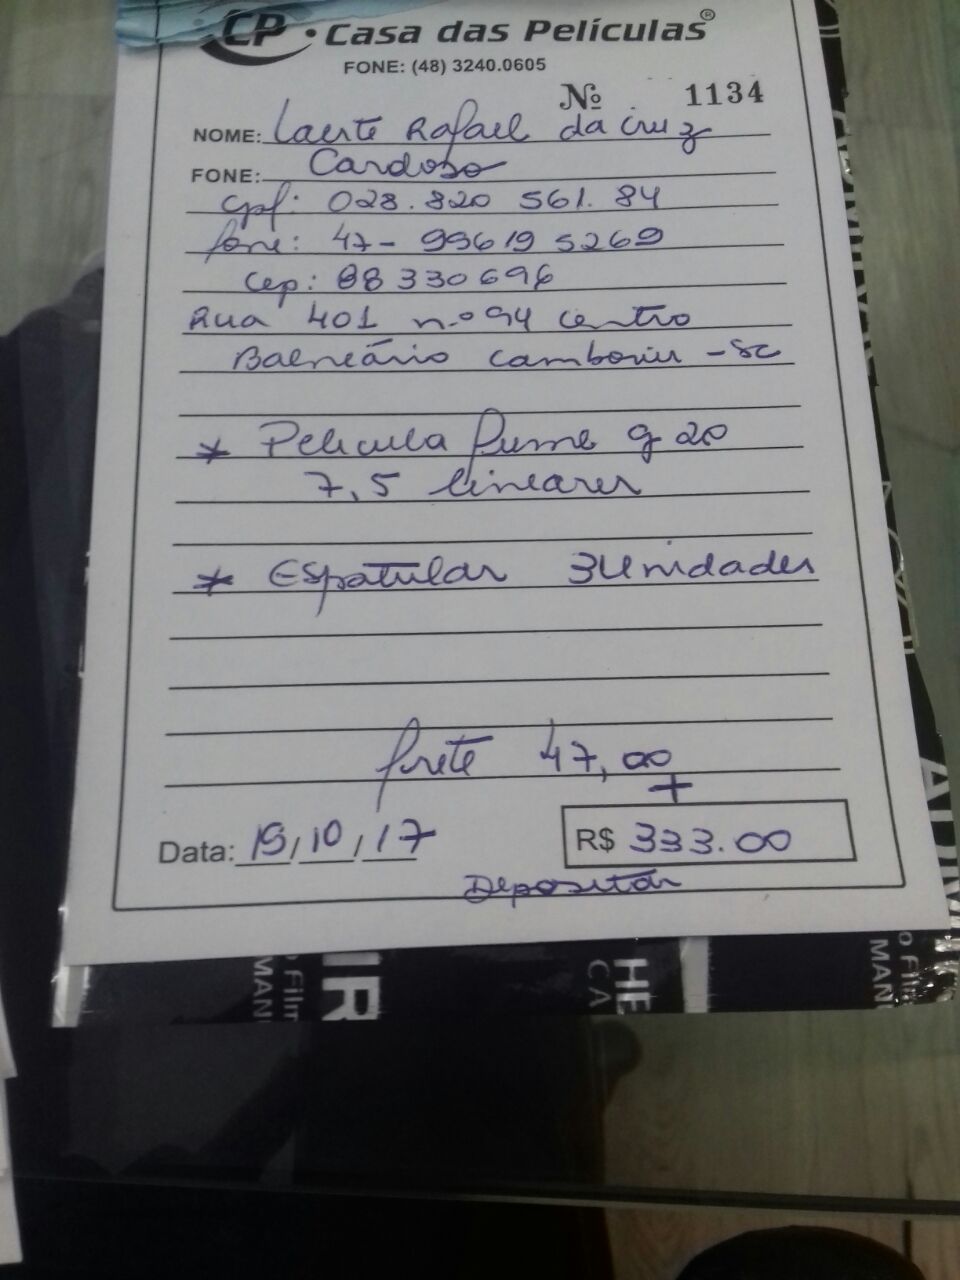 CP. Casa das Películas®
FONE: (48) 3240.0605
Nº 1134
NOME: Laerte Rafael da Cruz
FONE: Cardoso
cpf: 028.820 561.84
fone: 47- 99619 5269
Cep: 88330696
Rua 401 n.º 94 centro
Balneário camboriu - SC
* Película fume g 20
7,5 lineares
* Espatulas 3 Unidades
frete 47,00
+
Data: 19/10/17 R$ 333.00
Depositar
MAN
IR
CA
HE
o Film
MAN